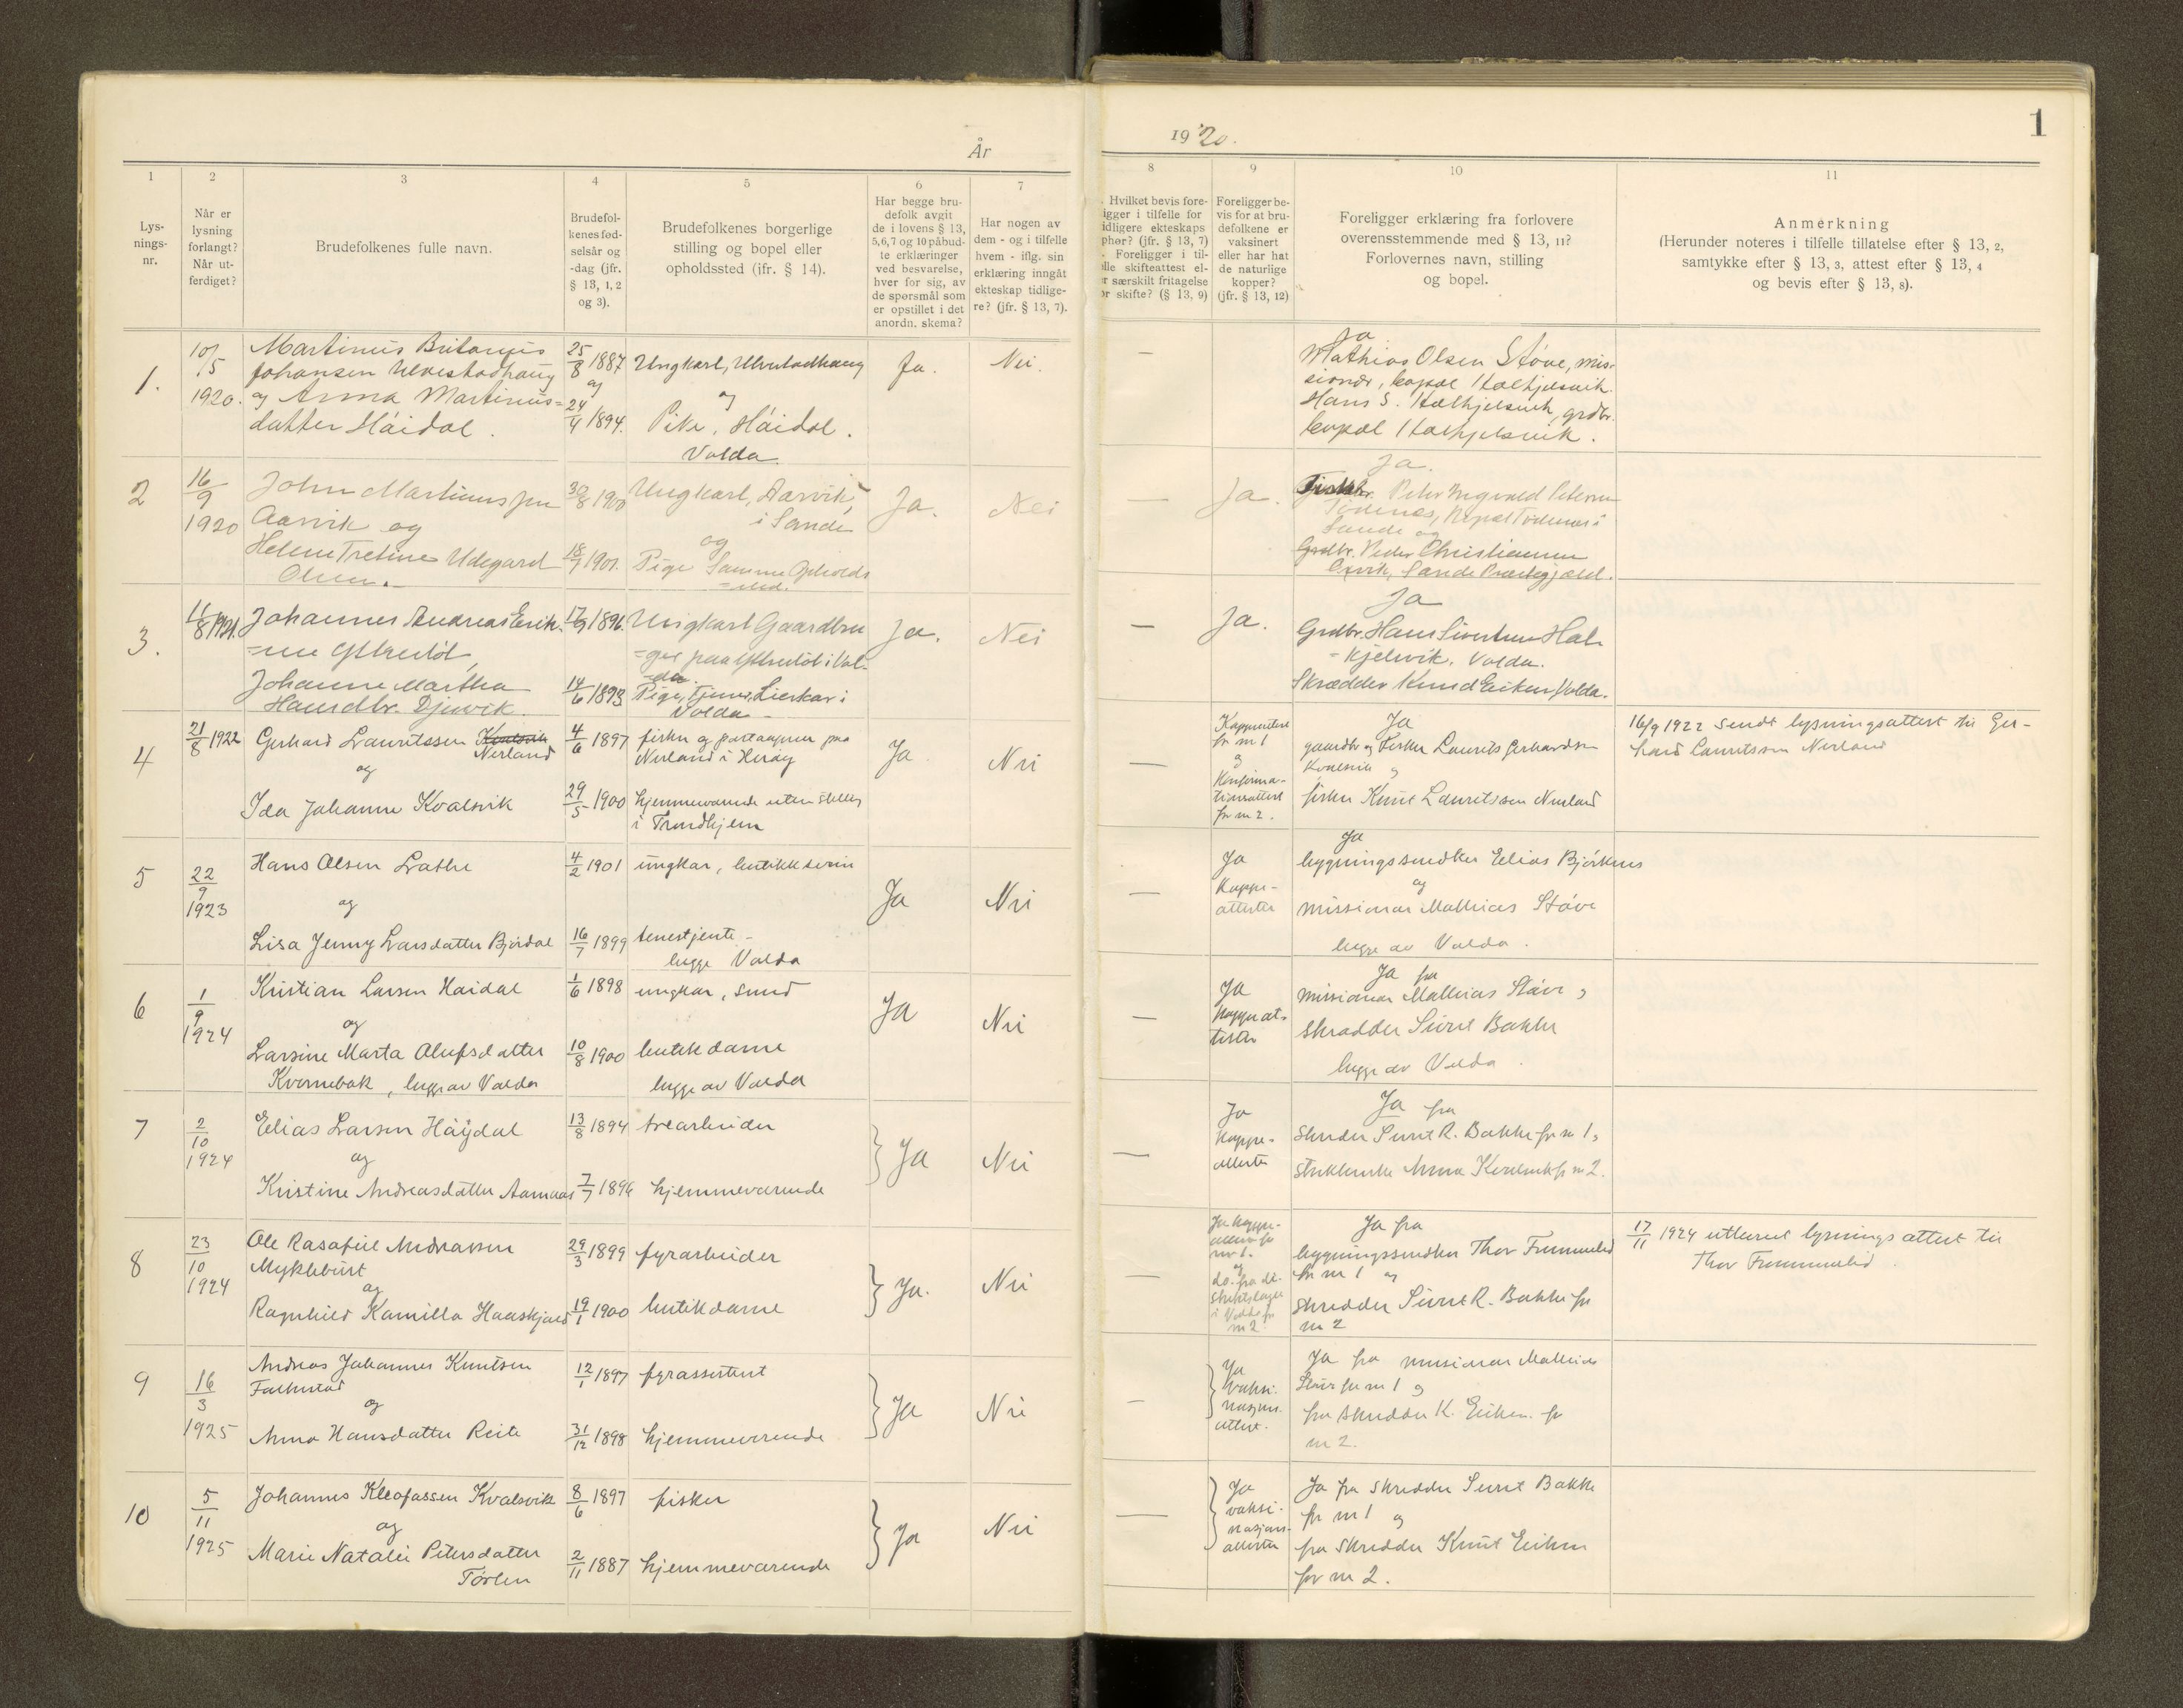 1
År
1920.
1
2
3
4
5
6
7
8
9
10
11
Lys-
nings-
nr.
Når er
lysning
forlangt?
Når ut-
ferdiget?
Brudefolkenes fulle navn.
Brudefol-
kenes fød-
selsår og
-dag (jfr.
§ 13, 1, 2
og 3).
Brudefolkenes borgerlige
stilling og bopel eller
opholdssted (jfr. § 14).
Har begge bru-
defolk avgit
de i lovens § 13,
5,6,7 og 10 påbud-
te erklæringer
ved besvarelse,
hver for sig, av
de spørsmål som
er opstillet i det
anordn. skema?
Har nogen av
dem - og i tilfelle
hvem - iflg. sin
erklæring inngåt
ekteskap tidlige-
re? (jfr. § 13, 7).
Hvilket bevis fore-
igger i tilfelle for
idligere ekteskaps
phør? (jfr. § 13, 7)
Foreligger i til-
lle skifteattest el-
r særskilt fritagelse
or skifte? (§ 13, 9)
Foreligger be-
vis for at bru-
defolkene er
vaksinert
eller har hat
de naturlige
kopper?
(jfr. § 13, 12)
Foreligger erklæring fra forlovere
overensstemmende med § 13, 11?
Forlovernes navn, stilling
og bopel.
Anmerkning
(Herunder noteres i tilfelle tillatelse efter § 13, 2,
samtykke efter § 13, 3, attest efter § 13, 4
og bevis efter § 13, 8).
1.
10/5
1920.
Martinus
Johansen Ulvestadhaug
og Anna Martinus=
datter Háidal.
25/8 1887
og
24/4 1894.
Ungkarl, Ulvestadhaug
og
Pike, Háidal.
Volda
Ja.
Nei.
—
Ja
Mathias Olsen Støve, mis-
sionær, bopæl Halkjelsvik.
Hans S. Halkjelsvik, grdbr.
bopæl Halkjelsvik.
2
16/9
1920
John Martinussen
Aarvik og
Helene Udegard
Olsen.
30/8 1900
18/7 1901.
Ungkarl, Aarvik,
i Sande
og
Pige Samme Opholds
=sted.
Ja.
Nei
—
Ja.
Ja.
Peter Ingvald Petersen
i
Sande og
Grdbr. Peder Christiansen
Sande Præstegjæld.
3.
11/8 1921.
Johannes Andreas Erik-
=sen
Johanne Martha
Hansdtr. Djuvik.
17/9 1896.
14/6 1893
Ungkarl Gaardbru
=ger paa i Vol-
=da.
Pige, Tjener, i
Volda
Ja.
Nei
—
Ja.
Ja
Grdbr. Hans Sivertsen Hal-
=kjelsvik. Volda.
Skrædder Knud Eiksen, Volda.
4
21/8 1922
Gerhard Lauritssen Kvalsvik
Nerland
og
Ida Johanne Kvalsvik
4/6 1897
29/5 1900
fisker og paa
Nerland i Herøy
hjemmeværende uten stilling
i Trondhjem
Ja
Nei
—
Koppeattest
for nr 1
og
Konfirma-
tionsattest
for nr 2.
Ja
gaardbr og Fisker Laurits Gerhardsen
Kvalsvik og
fisker Knut Lauritssen Nerland
16/9 1922 sendt lysningsattest til Ger-
hard Lauritssen Nerland
5
22/9
1923
Hans Olsen Løthe
og
Lisa Jenny Larsdatter Bjørdal
4/2 1901
16/7 1899
ungkar, butikksvein
tenestjente -
begge Volda
Ja
Nei
—
Ja
Koppe-
attester
Ja
bygningssnedker Elias Bjørknes
og
missionær Mathias Støve
begge av Volda.
6
1/9
1924
Kristian Larsen Háidal
og
Larsine Marta Olufsdatter
Kvernebak, begge av Volda
1/6 1898
10/8 1900
ungkar, smed
butikdame
begge av Volda
Ja
Nei
—
Ja
koppeat-
tester
Ja fra
missionær Mathias Støve og
skrædder Sivert Bakke
begge av Volda.
7
2/10
1924
Elias Larsen Háydal
og
Kristine Andreasdatter Aamaas
13/8 1894
7/7 1896
trearbeider
hjemmeværende
Ja
Nei
—
Ja
koppe-
attester
Ja fra
skredder Sivert R. Bakke for nr 1,
Anna for nr 2.
8
23/10
1924
Ole Rasafiel Andreassen
Myklebust
og
Ragnhild Kamilla Haaskjold
29/3 1899
19/1 1900
fyrarbeider
butikdame
Ja.
Nei
—
Ja koppe-
attest for
nr 1.
og
do. fra di-
striktslæge
i Volda for
nr 2
Ja fra
bygningssnedker Thor Frummelid
for nr 1 og
skredder Sivert R. Bakke for
nr 2
17/11 1924 utlevert lysningsattest til
Thor Frummelid.
9
16/3
1925
Andreas Johannes Knutsen
Falkestad
og
Anna Hansdatter Reite
12/1 1897
31/12 1898
fyrassistent
hjemmeværende
Ja
Nei
—
Ja
vaksi-
nasjons-
attest.
Ja fra missionær Mathias
Støve for nr 1 og
fra skredder K. Eiksen for
nr 2.
10
5/11
1925
Johannes Kleofassen Kvalsvik
og
Marie Natalie Petersdatter
Tørlen
8/6 1897
2/11 1887
fisker
hjemmeværende
Ja
Nei
—
Ja
vaksi-
nasjons-
attester
Ja fra skredder Sivert Bakke
for nr 1 og
fra skredder Knut Eiksen
for nr 2.